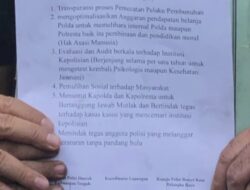 1. Transparansi proses Pemecatan Pelaku Pembunuhan
2. mengoptimalisasikan Anggaran pendapatan belanja
Polda untuk memelihara internal Polda dan
Polresta baik itu pembinaan dan pendidikan moral
(Hak Asasi Manusia)
3. Evaluasi dan Audit berkala terhadap Institusi
Kepolisian (Berjenjang selama per satu tahun untuk
mengetest kembali Psikologis maupun Kesehatan
Jasmani)
4. Pemulihan Sosial terhadap Masyarakat
5. Menuntut Kapolda dan Kapolresta untuk
Bertanggung Jawab Mutlak dan Bertindak tegas
terhadap kasus kasus yang mencemari institusi
kepolisian
Menindak tegas anggota polisi yang melanggar
peraturan tanpa pandang bulu
Koordinator Lapangan